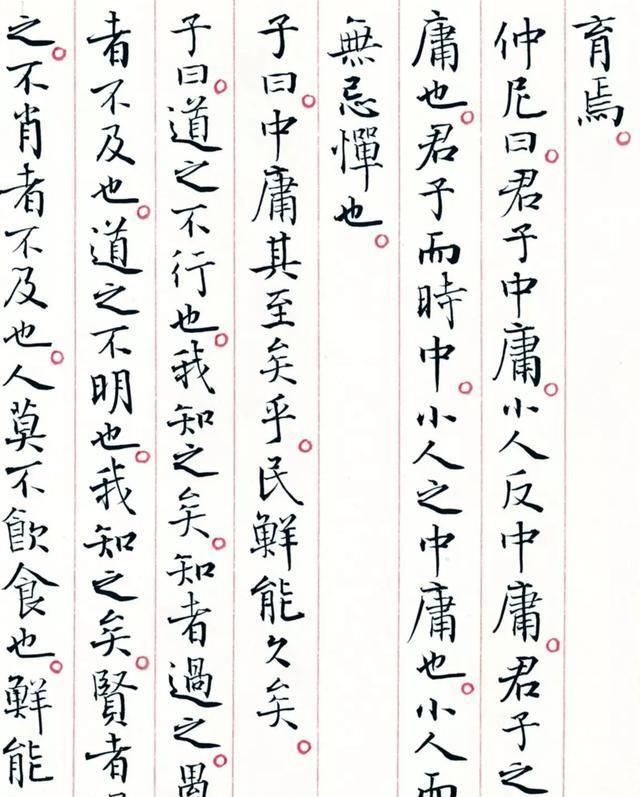 育焉。
仲尼曰。君子中庸。小人反中庸。君子之
庸也。君子而時中。小人之中庸也。小人而
無忌憚也。
子曰。中庸其至矣乎。民鮮能久矣。
子曰。道之不行也。我知之矣。知者過之。愚
者不及也。道之不明也。我知之矣。賢者
之。不肖者不及也。人莫不飲食也。鮮能